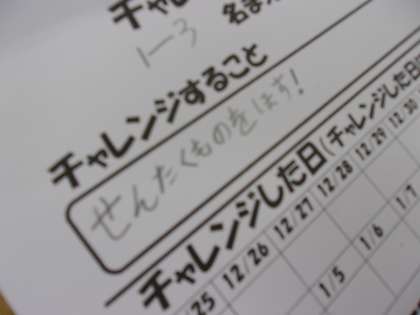 チャレ
1-3 名まえ
チャレンジすること
せんたくものをほす!
チャレンジした日(チャレンジした日に
25 12/26 12/27 12/28 12/29 12/30
1/5 1/6 1/7